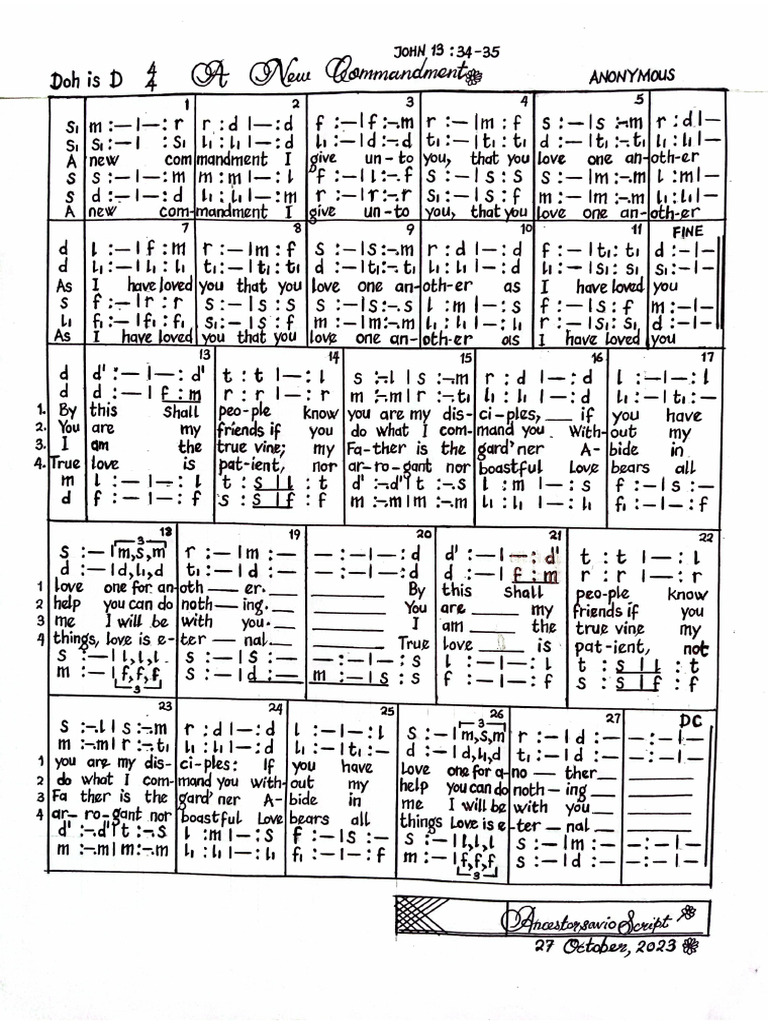 JOHN 13 : 34-35
Doh is D 4/4 A New Commandment ANONYMOUS
1 2 3 4 5
S₁ m :–|–: r r : d |–: d f :–|f :–.m r :–|m : f s :–|s :–.m r : d |–
S₁ S₁ :–|: S₁ l₁ : l₁ |–: d l₁ :–|d :–.d t₁ :–|t₁ : t₁ d :–|t₁ :–.t₁ l₁ : l₁|–
A new commandment I give un-to you, that you love one an-oth-er
S s :–|–: m m : m |–: l f :–|l :–.f s :–|s : s s :–|m :–.m l : m|–
S d :–|–: d l₁ : l₁ |–: m r :–|r :–.r S₁ :–|s : f m :–|m :–.m l₁ : l₁|–
A new com-mandment I give un-to you, that you love one an-oth-er
7 8 9 10 11 FINE
d l :–|f : m r :–|m : f s :–|s :–.m r : d |–: d f :–|t₁ : t₁ d :–|–
d l₁ :–|l₁ : l₁ t₁ :–|t₁ : t₁ d :–|t₁ :–.t₁ l₁ : l₁ |–: d l₁ :–|s₁ : s₁ s₁ :–|–
As I have loved you that you love one an-oth-er as I have loved you
S f :–|r : r s :–|s : s s :–|s :–.s l : m |–: s f :–|s : f m :–|–
l₁ f₁ :–|f₁ : f₁ s₁ :–|s : f m :–|m :–.m l₁ : l₁ |–: l₁ r :–|s₁ : s₁ d :–|–
As I have loved you that you love one an-oth-er as I have loved you
13 14 15 16 17
d d' :–|–: d' t : t |–: l s :–.l | s :–.m r : d |–: d l :–|–: l
d d :–|f : m r : r |–: r m :–.m| r :–.t₁ l₁ : l₁ |–: d l₁ :–|t₁ :–
1. By this shall peo-ple know you are my dis-ci-ples, ___ if you have
2. You are my friends if you do what I com-mand you With-out my
3. I am the true vine; my Fa-ther is the gard'ner A-bide in
4. True love is pat-ient, nor ar-ro-gant nor boastful Love bears all
m l :–|–: l t : s | l : t d' :–.d'| t :–.s l : m |–: s f :–|s :–
d f :–|–: f s : s | f : f m :–.m| m :–.m l₁ : l₁ |–: l₁ f₁ :–|f :–
18 19 20 21 22
s :–|m,s,m r :–|m :– – :–|–: d d' :–|–: d' t : t |–: l
d :–|d,l₁,d t₁ :–|d :– – :–|–: d d :–|f : m r : r |–: r
1 love one for an-oth ___ er. ___ ______ By this shall peo-ple know
2 help you can do noth-ing. ___ ______ You are ___ my friends if you
3 me I will be with you. ___ ______ I am ___ the true vine my
4 things, love is e-ter-nal. ___ ______ True love is pat-ient, not
s :–|l,l,l s :–|s :– – :–|–: s l :–|–: l t : s | l : t
m :–|f,f,f s :–|d :– m :–|s : s f :–|–: f s : s | f : f
3
23 24 25 26 27 DC
s :–.l| s :–.m r : d |–: d l :–|–: l s :–|m,s,m r :–|d :– – :–|–
m :–.m| r :–.t₁ l₁ : l₁ |–: d l₁ :–|t₁ :– d :–|d,l₁,d t₁ :–|d :– – :–|–
1 you are my dis-ci-ples: If you have love one for a-no ___ ther ___
2 do what I com-mand you With-out my help you can do noth-ing ___
3 Fa ther is the gard'ner A-bide in me I will be with you ___
4 ar-ro-gant nor boastful Love bears all things Love is e-ter-nal ___
d' :–.d'| t :–.s l : m |–: s f :–|s :– s :–|l,l,l s :–|m :– – :–|–
m :–.m| m :–.m l₁ : l₁ |–: l₁ f₁ :–|f :– m :–|f,f,f s :–|d :– – :–|–
3
Ancestorsavio Script
27 October, 2023